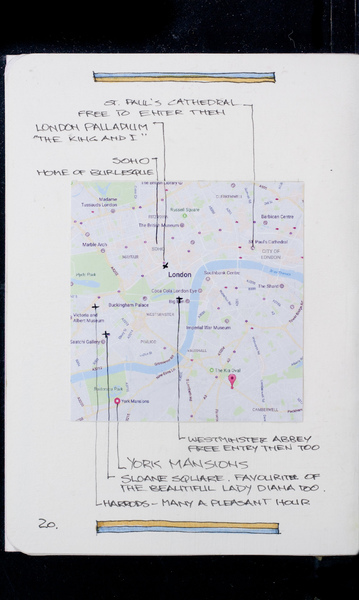 ST. PAUL'S CATHEDRAL
FREE TO ENTER THEN
LONDON PALLADIUM
"THE KING AND I"
SOHO
HOME OF BURLESQUE
Madame
Tussauds London
Russell Square
The British Museum
Barbican Centre
Marble Arch
SOHO
St. Paul's Cathedral
CITY OF
LONDON
Hyde Park
London
Southbank Centre
Coca-Cola London Eye
The Shard
Buckingham Palace
Big Ben
Victoria and
Albert Museum
WESTMINSTER
Imperial War Museum
Saatchi Gallery
PIMLICO
VAUXHALL
The Kia Oval
Battersea Park
York Mansions
CAMBERWELL
WESTMINSTER ABBEY
FREE ENTRY THEN TOO
YORK MANSIONS
SLOANE SQUARE. FAVOURITE OF
THE BEAUTIFUL LADY DIANA TOO.
HARRODS - MANY A PLEASANT HOUR
20.